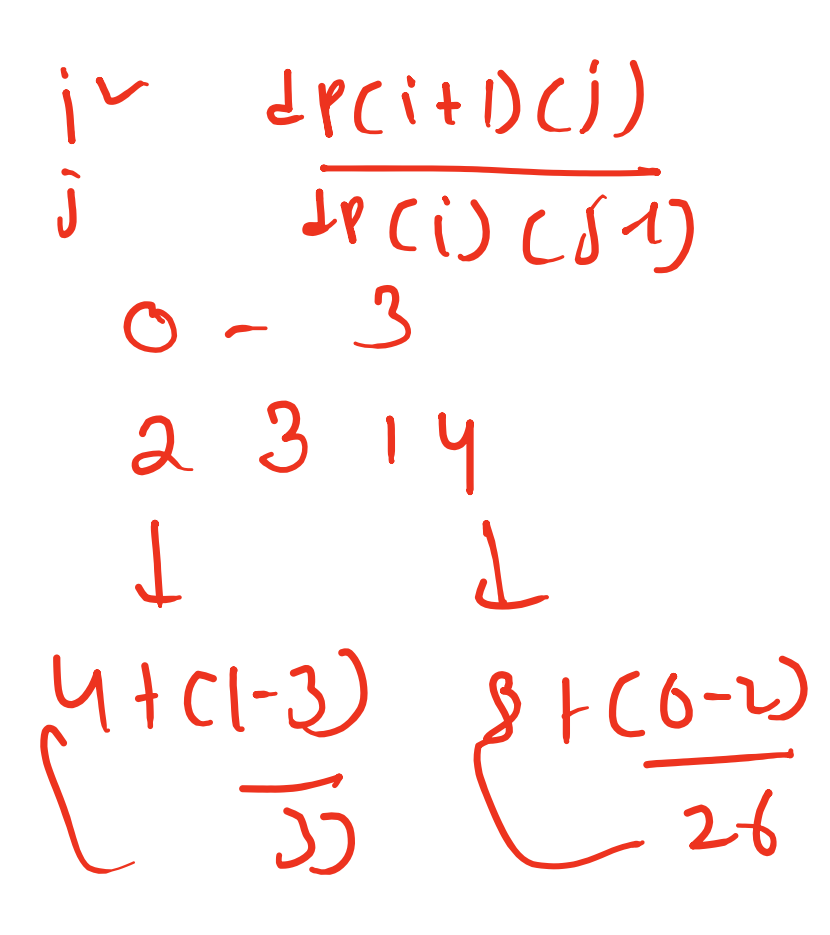 i ✓ dp(i+1)(j)
j dp(i)(j-1)
0 - 3
2 3 1 4
4+(1-3) 8+(0-2)
26